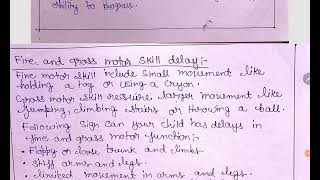 ability to progress.
Fine and gross motor skill delay :-
Fine motor skill include small movement like
holding a toy or using a crayon.
Gross motor skill require larger movement like
jumping, climbing stairs or throwing a ball.
Following sign can your child has delays in
fine and gross motor function :-
• Floppy or loose trunk and limbs
• Stiff arms and legs.
• limited movement in arms and legs.